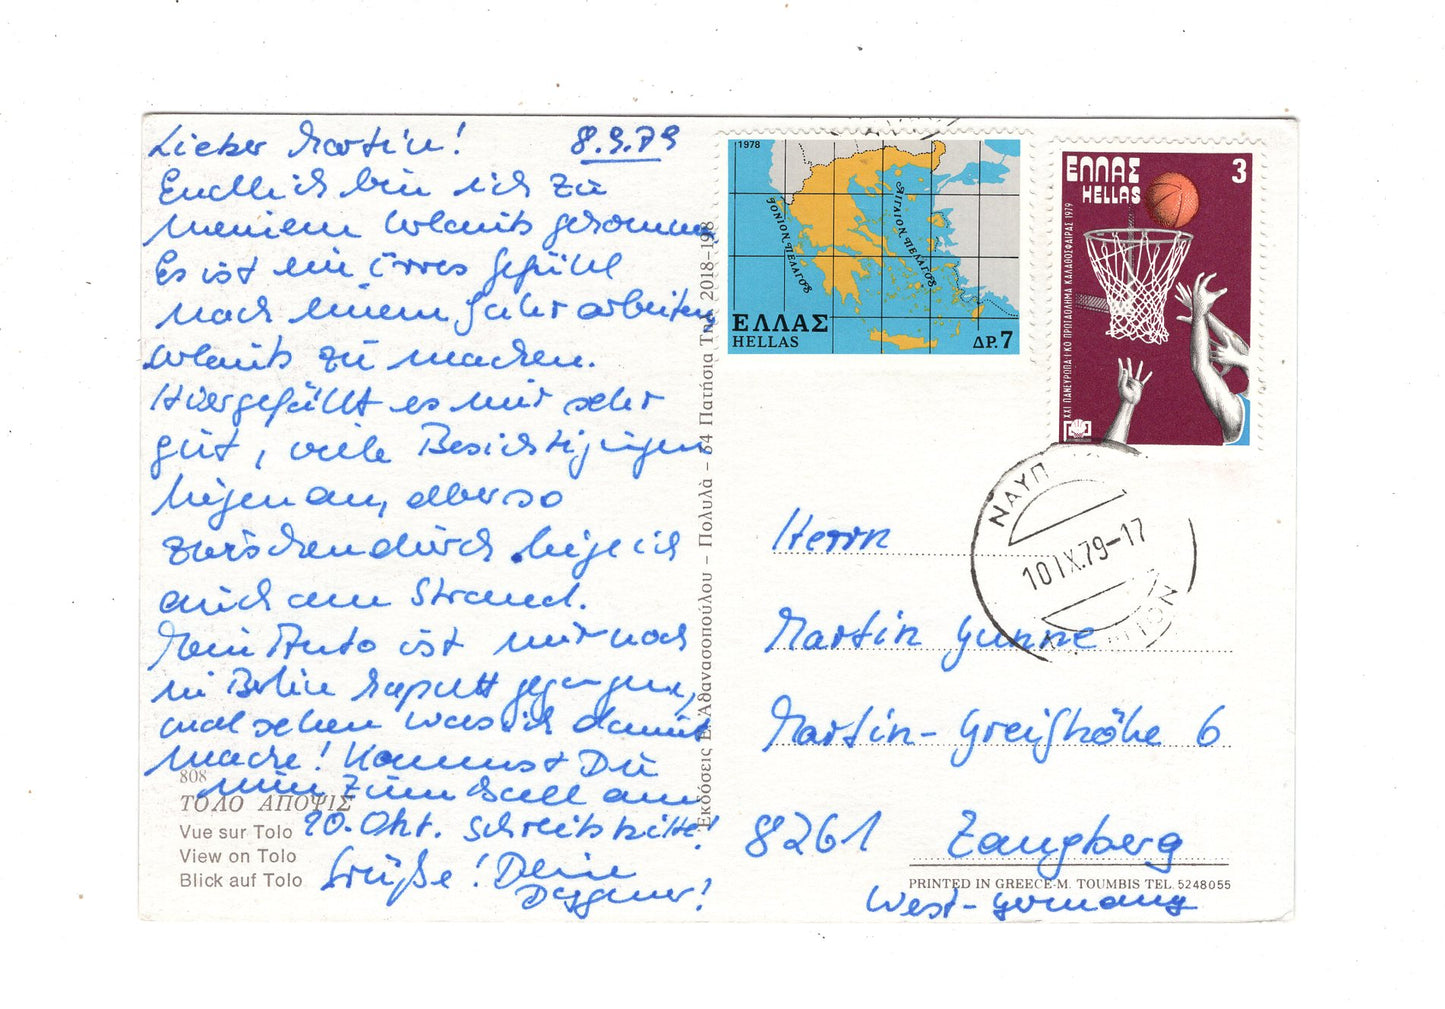 Lieber Martin! 8.9.79
Endlich bin ich zu
meinem Urlaub gekommen.
Es ist ein irres Gefühl
nach einem Jahr arbeiten
Urlaub zu machen.
Hier gefällt es mir sehr
gut, viele Besichtigungen
liegen an, aber so
zwischendurch liege ich
auch am Strand.
Mein Auto ist mir noch
in Berlin kaputt gegangen,
mal sehen was ich damit
mache! Kommst Du
zum Ball am
20. Okt. Schreib bitte!
Grüße! Deine
Dagmar!
808
ΤΟΛΟ ΑΠΟΨΙΣ
Vue sur Tolo
View on Tolo
Blick auf Tolo
Ἐκδόσεις Ε. Ἀθανασοπούλου – Πολυλᾶ – 54 Πατήσια Τηλ. 2018-198
1978
ΙΟΝΙΟΝ ΠΕΛΑΓΟΣ
ΑΙΓΑΙΟΝ ΠΕΛΑΓΟΣ
ΕΛΛΑΣ
HELLAS
ΔΡ.7
ΕΛΛΑΣ
HELLAS
3
XXI ΠΑΝΕΥΡΩΠΑΪΚΟ ΠΡΩΤΑΘΛΗΜΑ ΚΑΛΑΘΟΣΦΑΙΡΑΣ 1979
ΝΑΥΠ
10 IX.79-17
Herrn
Martin Gunne
Martin-Greifhöhe 6
8261 Zangberg
PRINTED IN GREECE-M. TOUMBIS TEL. 5248055
West-Germany